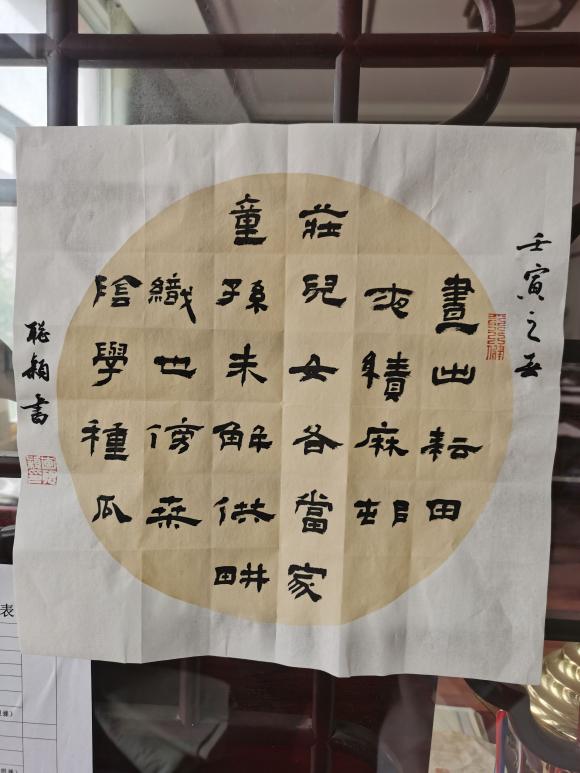 壬寅之春
晝出耘田
夜績麻邨
莊兒女各當家
童孫未解供畊
織也傍桒
陰學種瓜
聪穎書
表